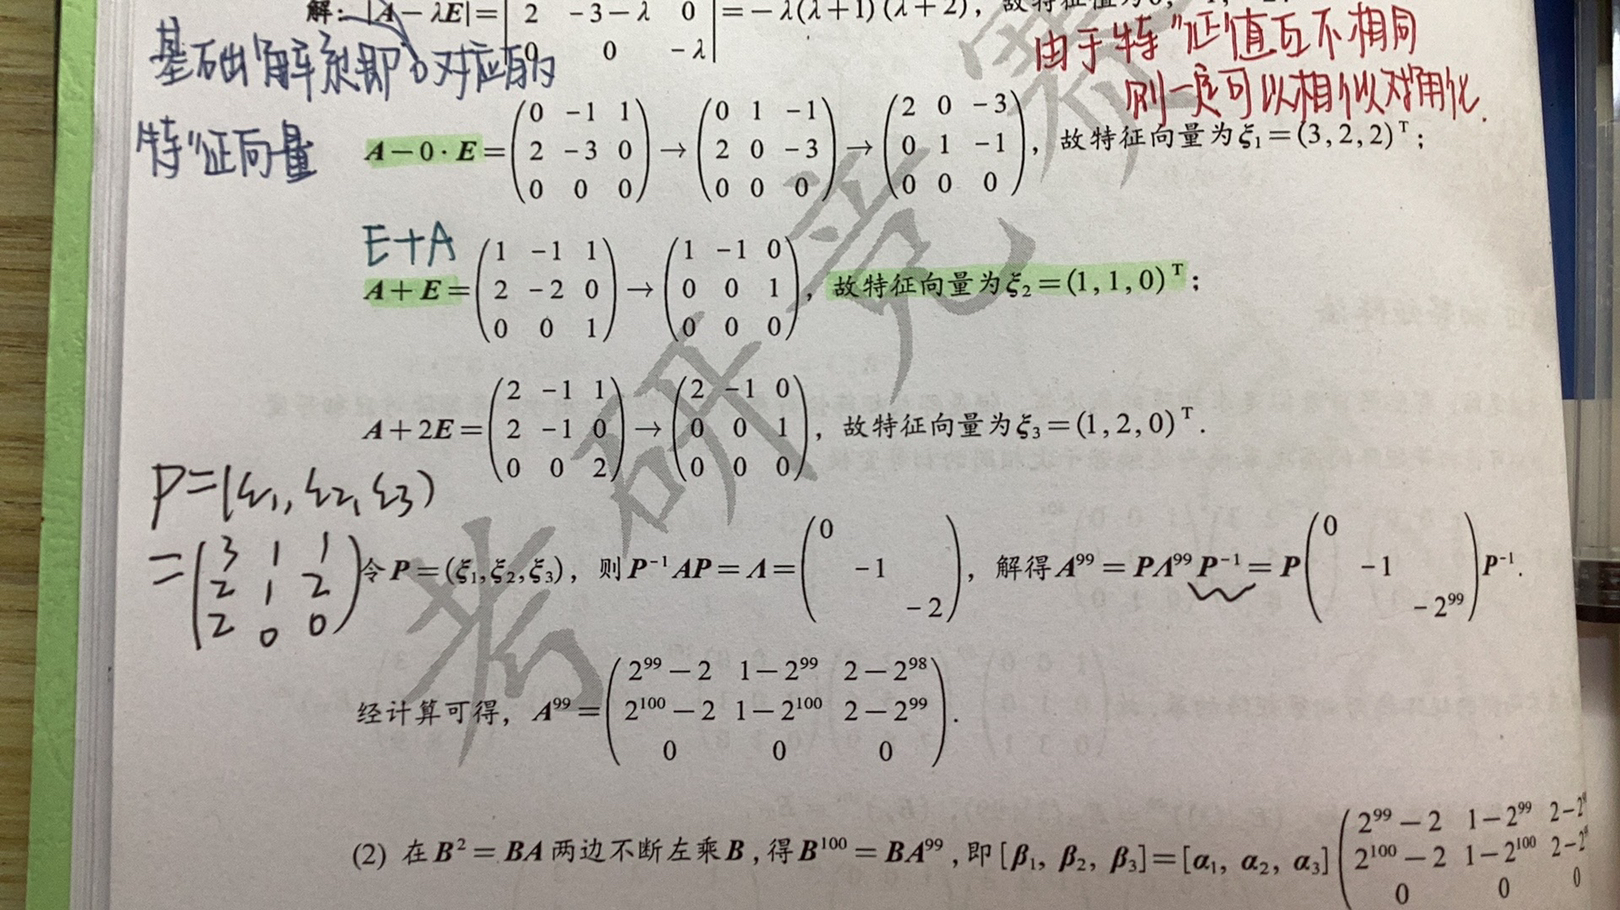 解: |A-λE|=| 2 -3-λ 0 |=-λ(λ+1)(λ+2),
0 0 -λ
基础解系即
特征向量
由于特征值互不相同
则一定可以相似对角化.
A-0·E=(0 -1 1; 2 -3 0; 0 0 0)→(0 1 -1; 2 0 -3; 0 0 0)→(2 0 -3; 0 1 -1; 0 0 0), 故特征向量为ξ₁=(3,2,2)ᵀ;
E+A
A+E=(1 -1 1; 2 -2 0; 0 0 1)→(1 -1 0; 0 0 1; 0 0 0), 故特征向量为ξ₂=(1,1,0)ᵀ;
A+2E=(2 -1 1; 2 -1 0; 0 0 2)→(2 -1 0; 0 0 1; 0 0 0), 故特征向量为ξ₃=(1,2,0)ᵀ.
P=(ξ₁,ξ₂,ξ₃)
=(3 1 1; 2 1 2; 2 0 0)
令P=(ξ₁,ξ₂,ξ₃), 则P⁻¹AP=Λ=(0 -1 -2), 解得A⁹⁹=PΛ⁹⁹P⁻¹=P(0 -1 -2⁹⁹)P⁻¹.
经计算可得, A⁹⁹=(2⁹⁹-2 1-2⁹⁹ 2-2⁹⁸; 2¹⁰⁰-2 1-2¹⁰⁰ 2-2⁹⁹; 0 0 0).
(2) 在B²=BA两边不断左乘B,得B¹⁰⁰=BA⁹⁹,即[β₁, β₂, β₃]=[α₁, α₂, α₃](2⁹⁹-2 1-2⁹⁹; 2¹⁰⁰-2 1-2¹⁰⁰; 0 0 0
考研竞赛